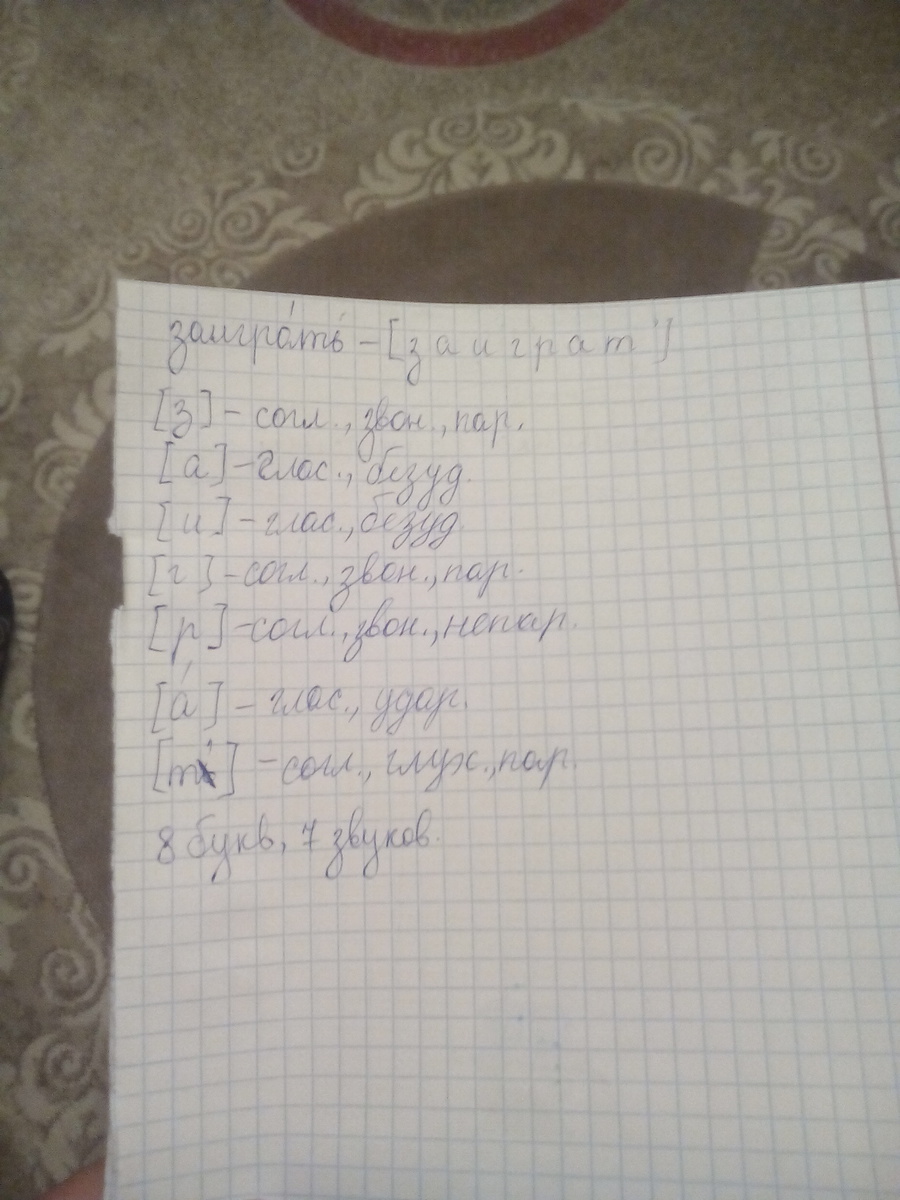 заигра́ть – [з а и г р а т']
[з] – согл., звон., пар.
[а] – глас., безуд.
[и] – глас., безуд
[г] – согл., звон., пар.
[р] – согл., звон., непар.
[а́] – глас., удар.
[т'] – согл., глух., пар.
8 букв, 7 звуков.